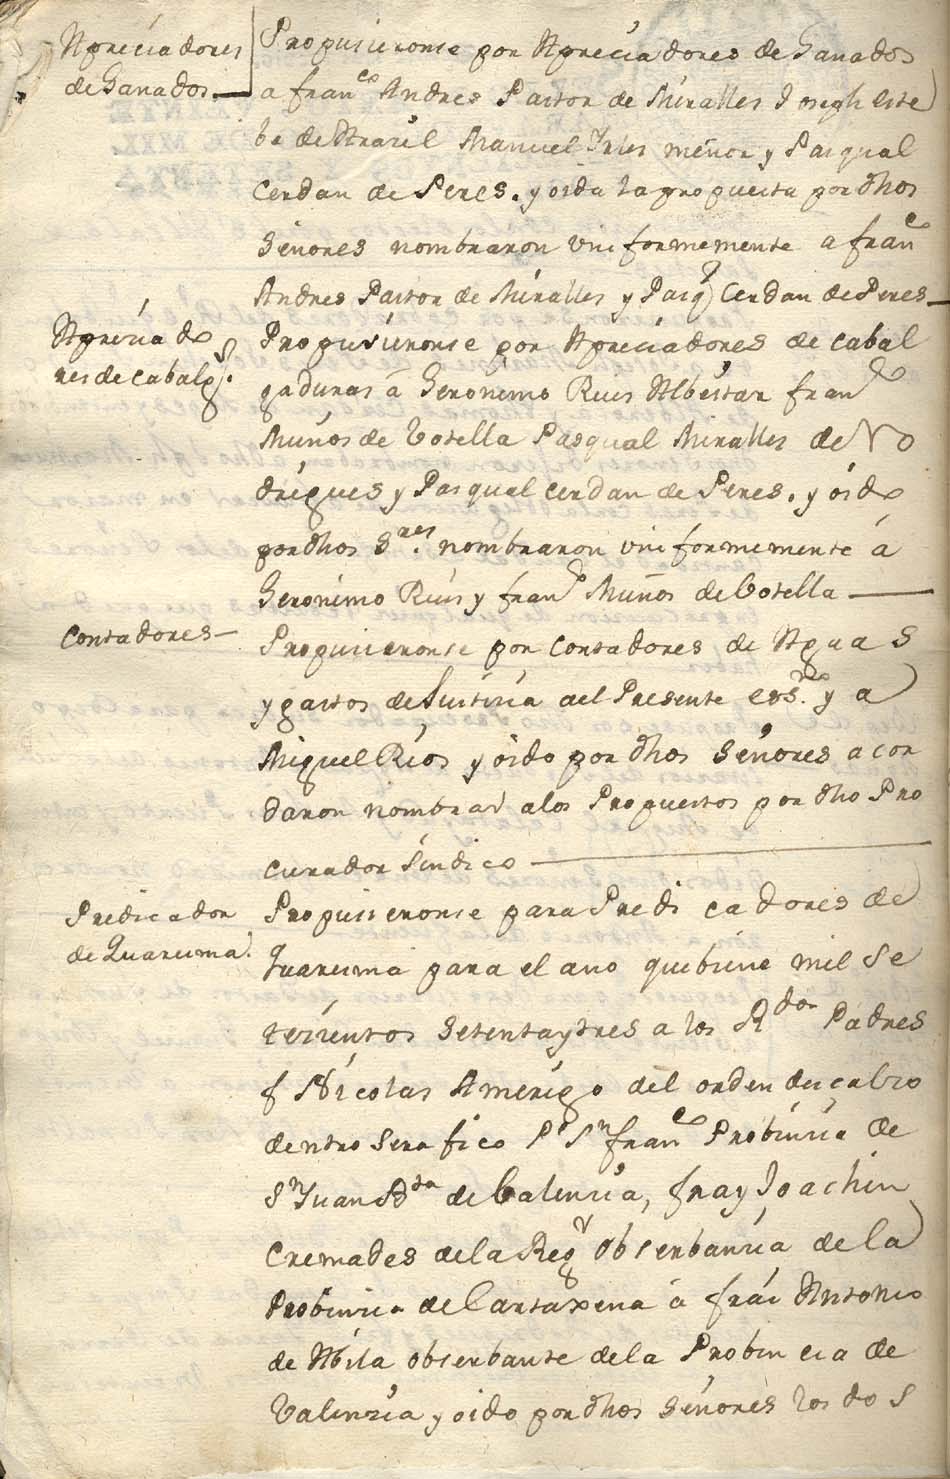 Apreciadores
de Ganados
Propusieronse por Apreciadores de Ganados
a Fran.co Andres Pastor de Miralles Joseph Este
be de Abril Manuel Irles menor y Pasqual
Cerdan de Peres. y oida la propuesta por dhos
Señores nombraron uniformemente a Fran.co
Andres Pastor de Miralles y Pasq.l Cerdan de Peres
Apreciado
res de cabalg.s
Propusieronse por Apreciadores de cabal
gaduras á Geronimo Ruis Albeitar Fran.co
Muños de Botella Pasqual Miralles de Ro
drigues y Pasqual Cerdan de Peres. y oido
por dhos S.res nombraron uniformemente á
Geronimo Ruis y Fran.co Muños de Botella
Contadores
Propusieronse por Contadores de Aguas
y gastos de Justicia al Presente ess.no y a
Miguel Rios y oido por dhos Señores acor
daron nombrar alos Propuestos por dho Pro
curador Sindico
Predicador
de Quaresma.
Propusieronse para Predicadores de
Quaresma para el año que biene mil se
tecientos setenta y tres a los R.dos Padres
f Nicolas Amerigo del orden descalso
de ntro Serafico P.e S.n Fran.co Probincia de
S.n Juan B.ta de Balencia, fray Joachin
Cremades de la Reg.r Obserbancia de la
Probincia de Cartaxena á frai Antonio
de Abila obserbante de la Probincia de
Valencia y oido por dhos Señores los dos